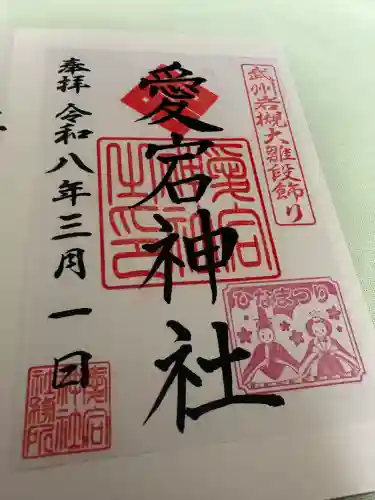 武州岩槻大雛段飾り
愛宕神社
奉拝 令和八年三月一日
愛宕神社之印
ひなまつり
愛宕神社社務所